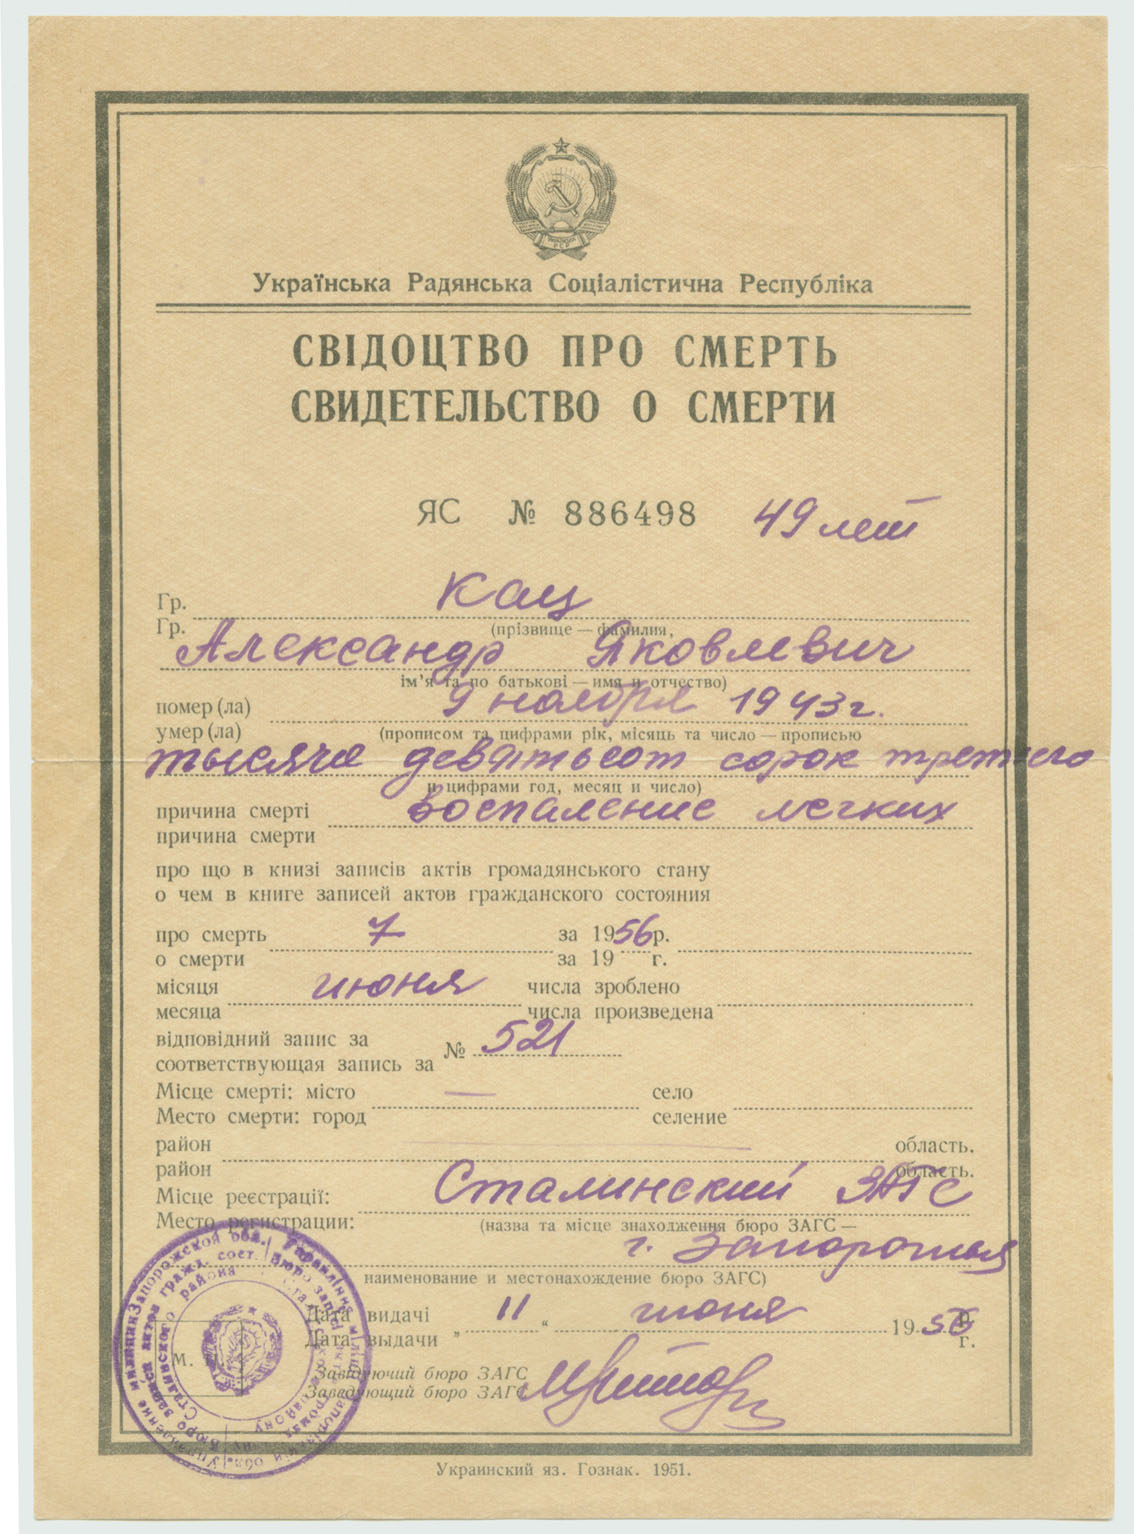 Українська Радянська Соціалістична Республіка
СВІДОЦТВО ПРО СМЕРТЬ
СВИДЕТЕЛЬСТВО О СМЕРТИ
ЯС № 886498 49 лет
Гр. Кац
Гр. (прізвище — фамилия,
Александр Яковлевич
ім'я та по батькові — имя и отчество)
помер (ла) 9 ноября 1943 г.
умер (ла) (прописом та цифрами рік, місяць та число — прописью
тысяча девятьсот сорок третьего
и цифрами год, месяц и число)
причина смерті воспаление легких
причина смерти
про що в книзі записів актів громадянського стану
о чем в книге записей актов гражданского состояния
про смерть 7 за 1956 р.
о смерти за 19 г.
місяця июня числа зроблено
месяца числа произведена
відповідний запис за № 521
соответствующая запись за
Місце смерті: місто — село
Место смерти: город селение
район — область.
район область.
Місце реєстрації: Сталинский ЗАГС
Место регистрации: (назва та місце знаходження бюро ЗАГС —
г. Запорожья
наименование и местонахождение бюро ЗАГС)
Дата видачі „ 11 “ июня 1956 р.
Дата выдачи г.
М. П.
Завідуючий бюро ЗАГС
Заведующий бюро ЗАГС
Управление милиции Запорожской обл.
Бюро записи актов гражд. сост.
Сталинского района
Украинский яз. Гознак. 1951.